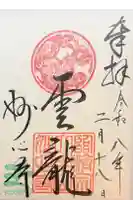 奉拝
令和八年
二月十八日
雲龍
妙心寺